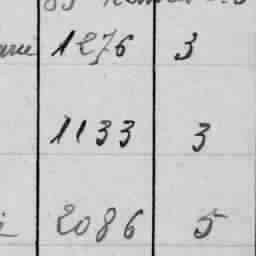 1276 3
1133 3
2086 5